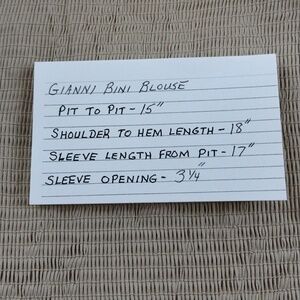 GIANNI BINI BLOUSE
PIT TO PIT - 15"
SHOULDER TO HEM LENGTH - 18"
SLEEVE LENGTH FROM PIT - 17"
SLEEVE OPENING - 3 1/4"